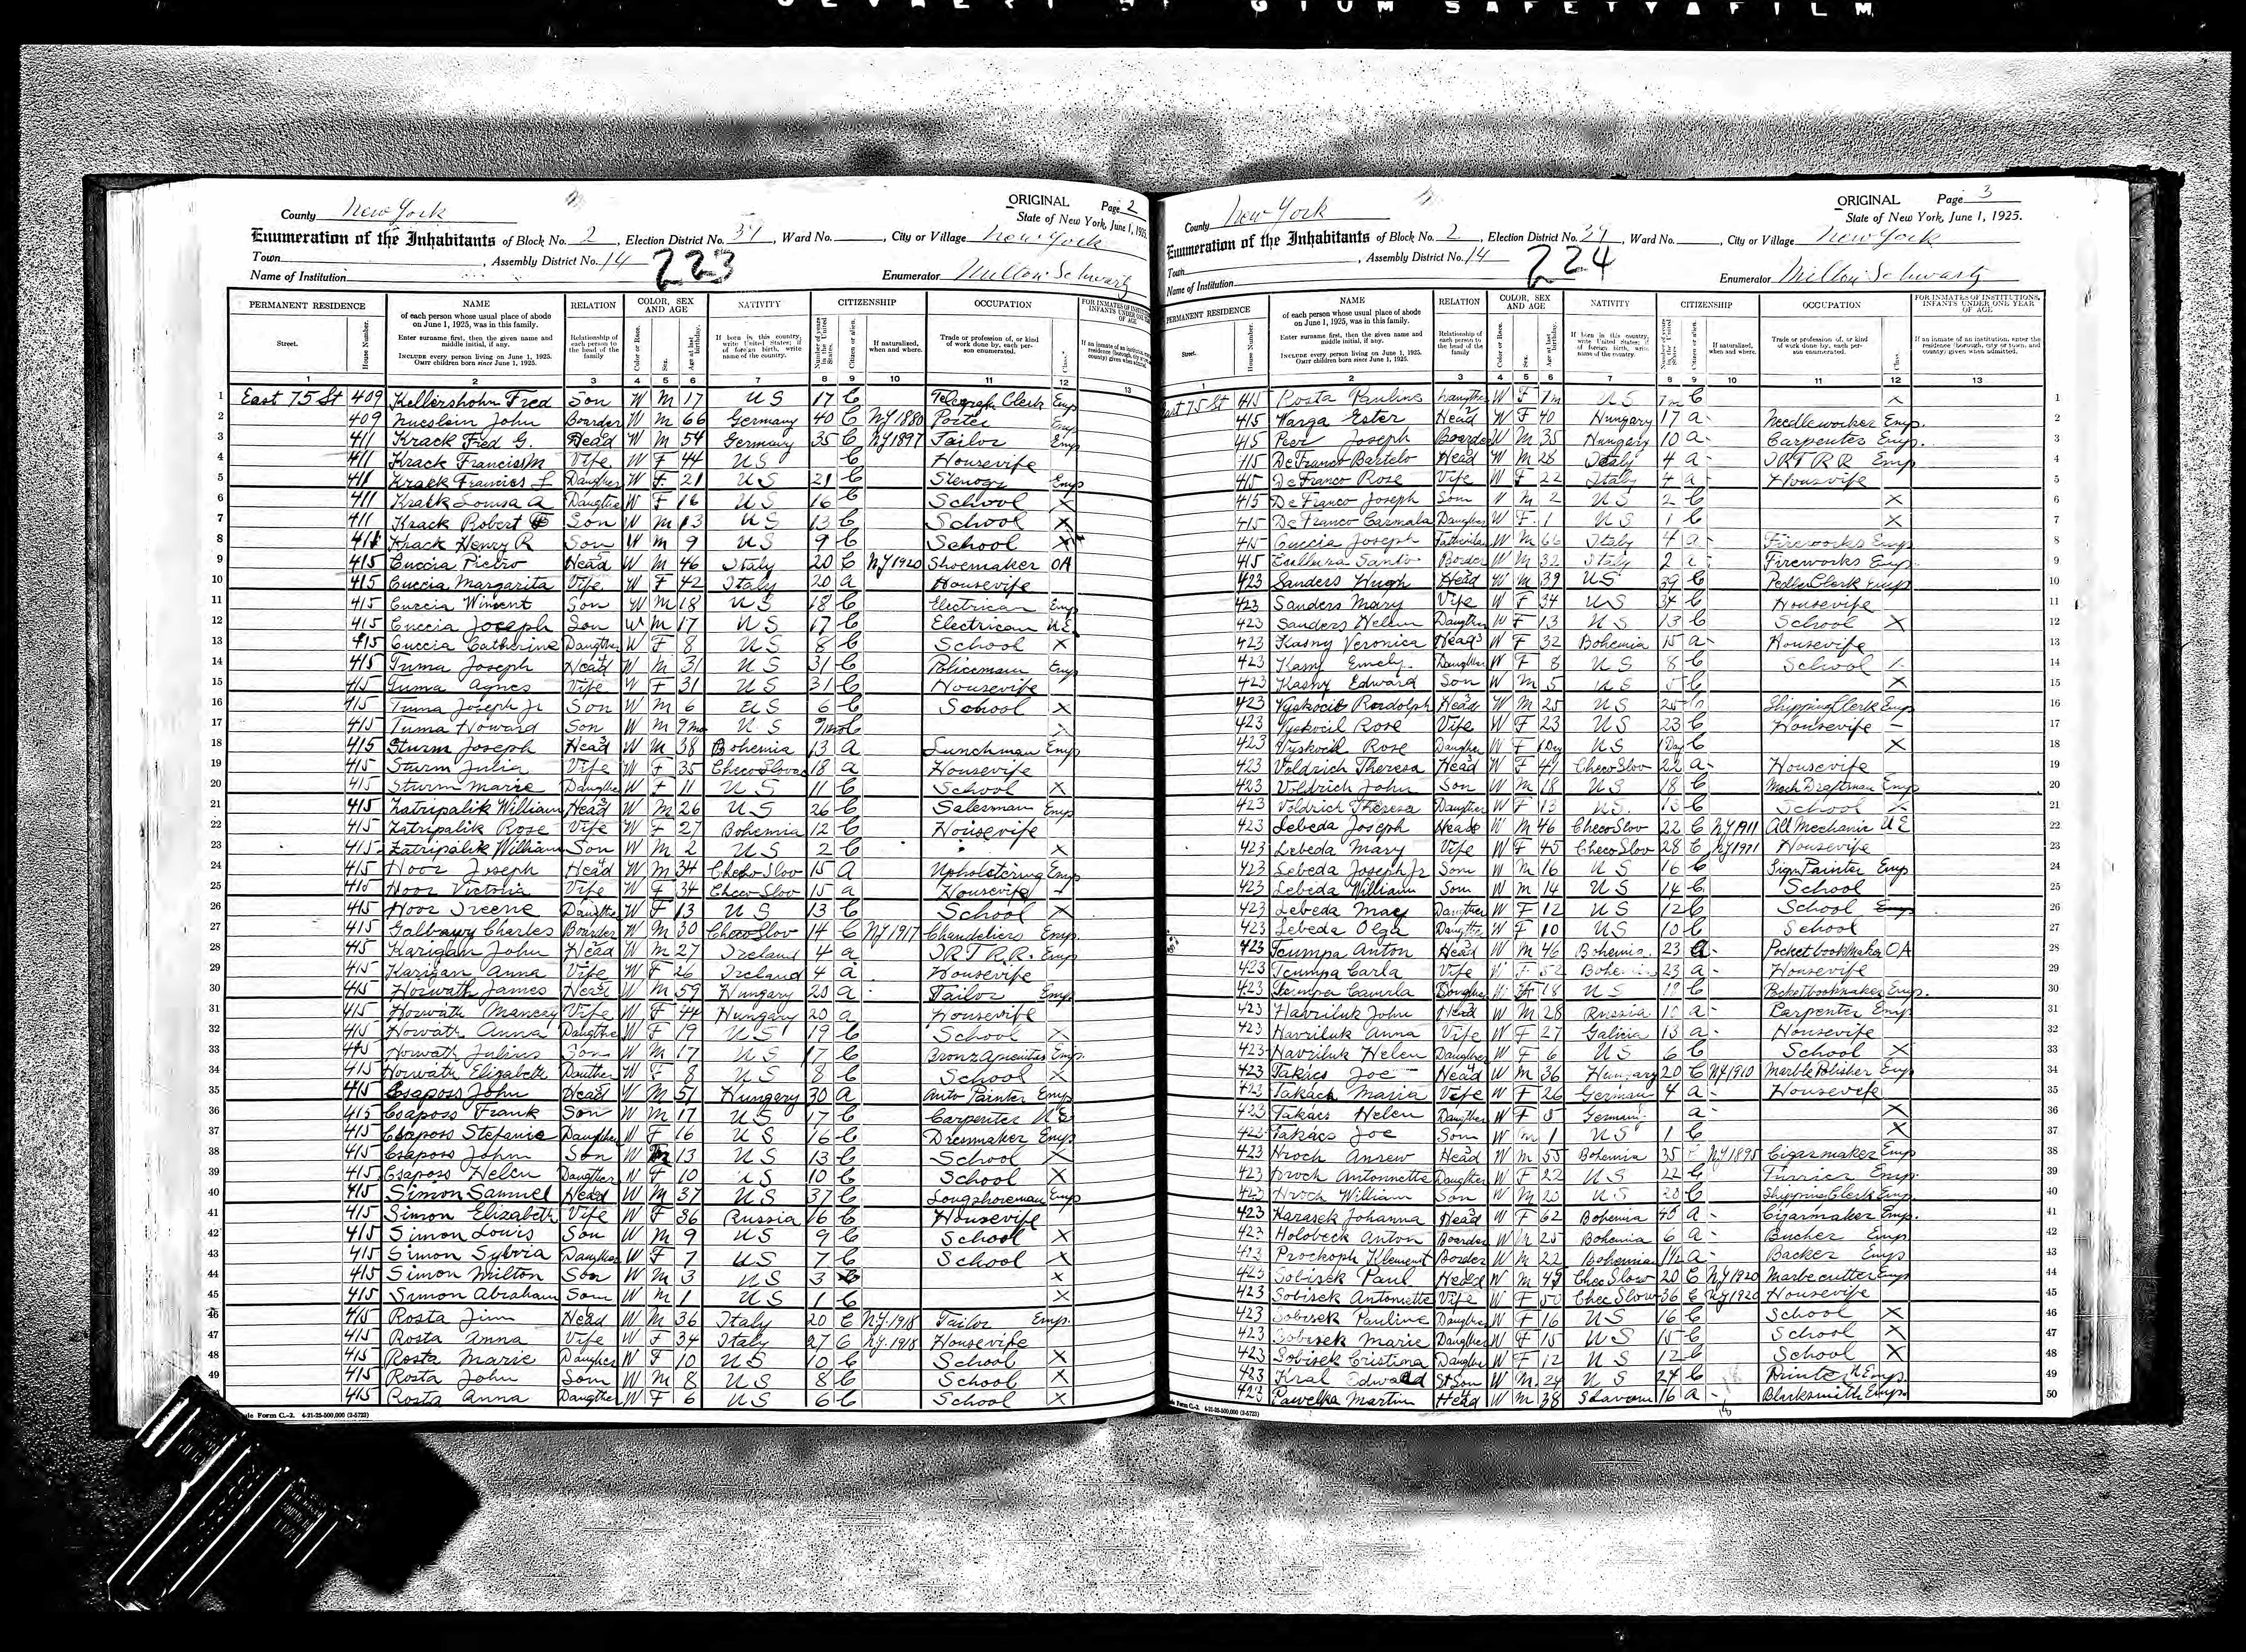 GEVAERT BELGIUM SAFETY FILM
ORIGINAL Page 2
County New York State of New York, June 1, 1925.
Enumeration of the Inhabitants of Block No. 2, Election District No. 37, Ward No. , City or Village New York
Town , Assembly District No. 14 223
Name of Institution Enumerator Milton Schwartz
PERMANENT RESIDENCE NAME RELATION COLOR, SEX AND AGE NATIVITY CITIZENSHIP OCCUPATION
1 East 75 St 409 Kellershohn Fred Son W M 17 US 17 C Telegraph Clerk Emp
2 409 John Boarder W M 66 Germany 40 C NY 1880 Porter Emp
3 411 Krack Fred G. Head W M 54 Germany 35 C NY 1897 Tailor Emp
4 411 Krack Frances M Vife W F 44 US C Housevife
5 411 Krack Francies L Daughter W F 21 US 21 C Stenogr Emp
6 411 Krack Louisa A Daugther W F 16 US 16 C School X
7 411 Krack Robert Son W M 13 US 13 C School X
8 411 Krack Henry R Son W M 9 US 9 C School X
9 415 Cuccia Pietro Head W M 46 Italy 20 C NY 1920 Shoemaker OA
10 415 Cuccia Margarita Vife W F 42 Italy 20 a Housevife
11 415 Cuccia Winsent Son W M 18 US 18 C Electrican Emp
12 415 Cuccia Joseph Son W M 17 US 17 C Electrican U.E.
13 415 Cuccia Catherine Daugther W F 8 US 8 C School X
14 415 Tuma Joseph Head W M 31 US 31 C Policemann Emp
15 415 Tuma Agnes Vife W F 31 US 31 C Housevife
16 415 Tuma Joseph Jr Son W M 6 US 6 C School X
17 415 Tuma Howard Son W M 9 mo US 9 mo C X
18 415 Sturm Joseph Head W M 38 Bohemia 13 a Lunchman Emp
19 415 Sturm Julia Vife W F 35 ChecoSlovac 18 a Housevife
20 415 Sturm Marie Daugther W F 11 US 11 C School X
21 415 Zatripalik William Head W M 26 US 26 C Salesman Emp
22 415 Zatripalik Rose Vife W F 27 Bohemia 12 C Housevife
23 415 Zatripalik William Son W M 2 US 2 C X
24 415 Hoor Joseph Head W M 34 Checo Slov 15 a Upholstering Emp
25 415 Hoor Victoria Vife W F 34 Checo Slov 15 a Housevife
26 415 Hoor Ireene Daugther W F 13 US 13 C School X
27 415 Galbavy Charles Boarder W M 30 ChecoSlov 14 C NY 1917 Chandeliers Emp.
28 415 Karigan John Head W M 27 Ireland 4 a I R T R.R. Emp
29 415 Karigan Anna Vife W F 26 Ireland 4 a Housevife
30 415 Horwath James Head W M 59 Hungary 20 a Tailor Emp
31 415 Horwath Vife W F 44 Hungary 20 a Housevife
32 415 Horwath Anna Daugther W F 19 US 19 C School X
33 415 Horwath Julius Son W M 17 US 17 C Emp.
34 415 Horwath Elizabeth Dauther W F 8 US 8 C School X
35 415 Csaposs John Head W M 51 Hungery 30 A Auto Painter Emp
36 415 Csaposs Frank Son W M 17 US 17 C Carpenter U E
37 415 Csaposs Stefanie Daugther W F 16 US 16 C Dressmaker Emp
38 415 Csaposs John Son W M 13 US 13 C School X
39 415 Csaposs Helen Daugther W F 10 US 10 C School X
40 415 Simon Samuel Head W M 37 US 37 C Longshoreman Emp
41 415 Simon Elizabeth Vife W F 36 Russia 16 C Housevife
42 415 Simon Louis Son W M 9 US 9 C School X
43 415 Simon Sylvia Daugther W F 7 US 7 C School X
44 415 Simon Milton Son W M 3 US 3 C X
45 415 Simon Abraham Son W M 1 US 1 C X
46 415 Rosta Jim Head W M 36 Italy 20 C N.Y. 1918 Tailor Emp.
47 415 Rosta Anna Vife W F 34 Italy 27 C N.Y. 1918 Housevife
48 415 Rosta Marie Daugher W F 10 US 10 C School X
49 415 Rosta John Son W M 8 US 8 C School X
415 Rosta Anna Daugther W F 6 US 6 C School X
Form C.-2. 4-21-25-500,000 (2-5723)
ORIGINAL Page 3
County New York State of New York, June 1, 1925.
Enumeration of the Inhabitants of Block No. 2, Election District No. 37, Ward No. , City or Village New York
Town , Assembly District No. 14 224
Name of Institution Enumerator Milton Schwartz
PERMANENT RESIDENCE NAME RELATION COLOR, SEX AND AGE NATIVITY CITIZENSHIP OCCUPATION FOR INMATES OF INSTITUTIONS, INFANTS UNDER ONE YEAR OF AGE
East 75 St 415 Rosta Pauline Daugther W F 7m US 7m C X 1
415 Warga Ester Head W F 40 Hungary 17 a Needleworker Emp 2
415 Peer Joseph Boarder W M 35 Hungary 10 a Carpenter Emp. 3
415 DeFranco Bartelo Head W M 28 Italy 4 a I R T R R Emp 4
415 DeFranco Rose Vife W F 22 Italy 4 a Housvife 5
415 DeFranco Joseph Son W M 2 US 2 C X 6
415 DeFranco Carmala Daugther W F 1 US 1 C X 7
415 Cuccia Joseph W M 66 Italy 4 a Fireworks Emp 8
415 Santo Border W M 32 Italy 2 a Fireworks Emp 9
423 Sanders Hugh Head W M 39 US 39 C Clerk Emp 10
423 Sanders Mary Vife W F 34 US 34 C Housevife 11
423 Sanders Helen Daugther W F 13 US 13 C School X 12
423 Kasny Veronica Head W F 32 Bohemia 15 a Housevife 13
423 Kasny Emely Daugther W F 8 US 8 C School X 14
423 Kasny Edward Son W M 5 US 5 C X 15
423 Vyskocil Rudolph Head W M 25 US 25 C Shipping Clerk Emp 16
423 Vyskocil Rose Vife W F 23 US 23 C Housevife 17
423 Vyskocil Rose Daugther W F 1 Day US 1 Day C X 18
423 Voldrich Theresa Head W F 47 ChecoSlov 22 a Housevife 19
423 Voldrich John Son W M 18 US 18 C Mech Draftman Emp 20
423 Voldrich Theresa Daugther W F 13 US. 13 C School X 21
423 Lebeda Joseph Head W M 46 ChecoSlov 22 C NY 1911 All Mechanic U E 22
423 Lebeda Mary Vife W F 45 ChecoSlov 28 C NY 1911 Housevife 23
423 Lebeda Joseph Jr Son W M 16 US 16 C Sign Painter Emp 24
423 Lebeda William Son W M 14 US 14 C School 25
423 Lebeda Mae Daugther W F 12 US 12 C School 26
423 Lebeda Olga Daugther W F 10 US 10 C School 27
423 Tcumpa Anton Head W M 46 Bohemia 23 a Pocketbookmaker OA 28
423 Tcumpa Carla Vife W F 52 Bohemia 23 a Housevife 29
423 Tcumpa Daugther W F 18 US 18 C Pocketbookmaker Emp. 30
423 Havriluk John Head W M 28 Russia a Carpenter Emp 31
423 Havriluk Anna Vife W F 27 Galicia 13 a Housevife 32
423 Havriluk Helen Daugther W F 6 US 6 C School X 33
423 Takács Joe Head W M 36 Hungary 20 C NY 1910 Marble Polisher Emp 34
423 Takács Maria Vife W F 26 German 4 a Housevefe 35
423 Takács Helen Daugther W F German a X 36
423 Takács Joe Son W M 1 US 1 C X 37
423 Hroch Andrew Head W M 55 Bohemia 35 C NY 1895 Cigarmaker Emp 38
423 Hroch Antonnette Daugther W F 22 US 22 C Furrier Emp. 39
423 Hroch William Son W M 20 US 20 C Shipping Clerk Emp. 40
423 Karasek Johanna Head W F 62 Bohemia 40 a Cigarmaker Emp. 41
423 Holobeck Anton Boarder W M 25 Bohemia 6 a Bucher Emp 42
423 Prockoph Klement Border W M 22 Bohemia 1½ a Backer Emp 43
423 Sobisek Paul Head W M 49 ChecSlow 20 C NY 1920 Marbecutter Emp 44
423 Sobisek Antoniette Vife W F 50 ChecSlow 36 C NY 1920 Housevife 45
423 Sobisek Pauline Daugther W F 16 US 16 C School X 46
423 Sobisek Marie Daugther W F 15 US 15 C School X 47
423 Sobisek Cristina Daugther W F 12 US 12 C School X 48
423 Kral Edward St Son W M 24 US 24 C Printer Emp. 49
423 Pawelka Martin Head W M 38 Slavom 16 a Blacksmith Emp. 50
Form C.-2. 4-21-25-500,000 (2-5723)